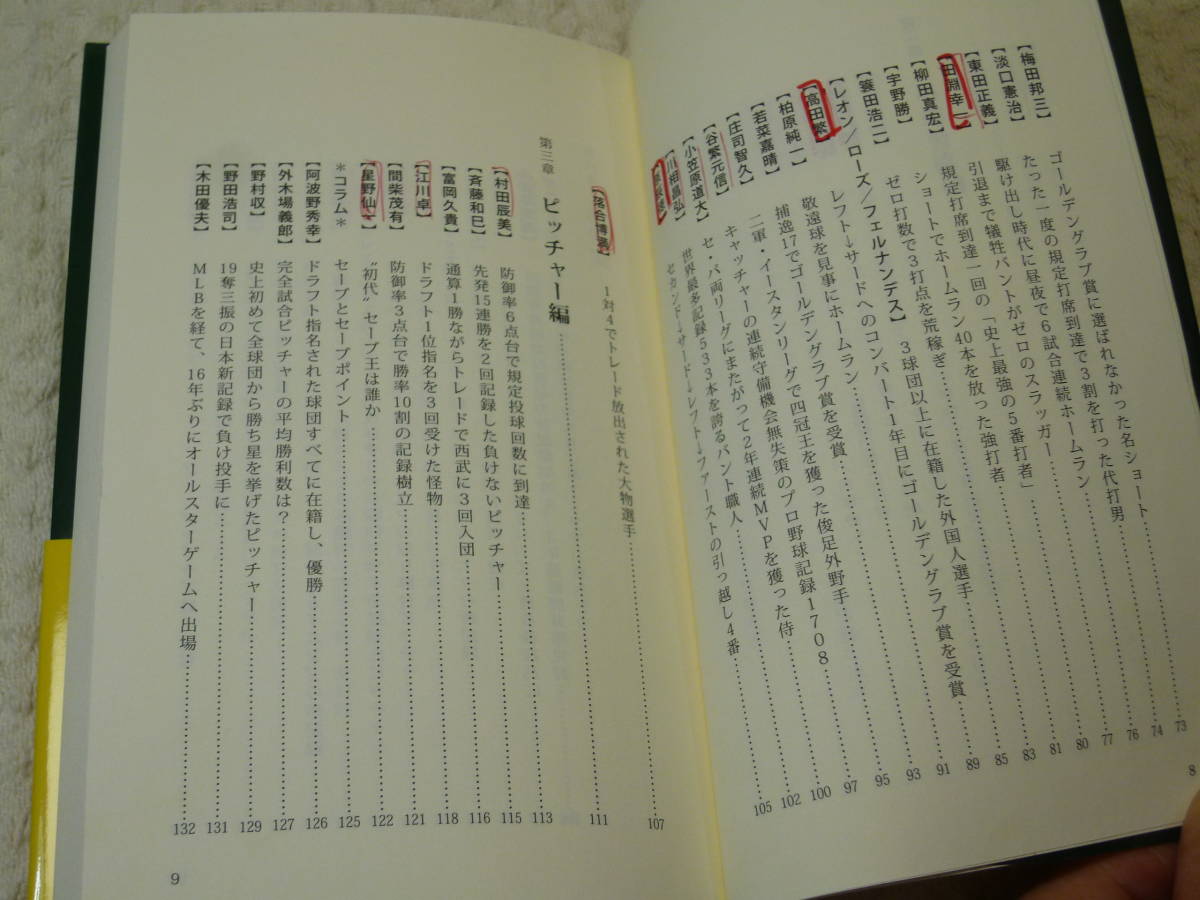 【梅田邦三】 ゴールデングラブ賞に選ばれなかった名ショート 73
【淡口憲治】 たった一度の規定打席到達で3割を打った代打男 74
【東田正義】 駆け出し時代に昼夜で6試合連続ホームラン 76
【田淵幸一】 引退まで犠牲バントがゼロのスラッガー 77
【柳田真宏】 規定打席到達一回の「史上最強の5番打者」 80
【宇野勝】 ショートでホームラン40本を放った強打者 81
【簑田浩二】 ゼロ打数で3打点を荒稼ぎ 83
【レオン/ローズ/フェルナンデス】 3球団以上に在籍した外国人選手 85
【高田繁】 レフト→サードへのコンバート1年目にゴールデングラブ賞を受賞 89
【柏原純一】 敬遠球を見事にホームラン 91
【若菜嘉晴】 捕逸17でゴールデングラブ賞を受賞 93
【庄司智久】 二軍・イースタンリーグで四冠王を獲った俊足外野手 95
【谷繁元信】 キャッチャーの連続守備機会無失策のプロ野球記録1708 97
【小笠原道大】 セ・パ両リーグにまたがって2年連続MVPを獲った侍 100
【川相昌弘】 世界最多記録533本を誇るバント職人 102
セカンド→サード→レフト→ファーストの引っ越し4番 105
8
【落合博満】 1対4でトレード放出された大物選手 107
第三章 ピッチャー編 111
【村田辰美】 防御率6点台で規定投球回数に到達 113
【斉藤和巳】 先発15連勝を2回記録した負けないピッチャー 115
【富岡久貴】 通算1勝ながらトレードで西武に3回入団 116
【江川卓】 ドラフト1位指名を3回受けた怪物 118
【間柴茂有】 防御率3点台で勝率10割の記録樹立 121
【星野仙一】 〝初代〟セーブ王は誰か 122
*コラム* セーブとセーブポイント 125
【阿波野秀幸】 ドラフト指名された球団すべてに在籍し、優勝 126
【外木場義郎】 完全試合ピッチャーの平均勝利数は? 127
【野村収】 史上初めて全球団から勝ち星を挙げたピッチャー 129
【野田浩司】 19奪三振の日本新記録で負け投手に 131
【木田優夫】 MLBを経て、16年ぶりにオールスターゲームへ出場 132
9